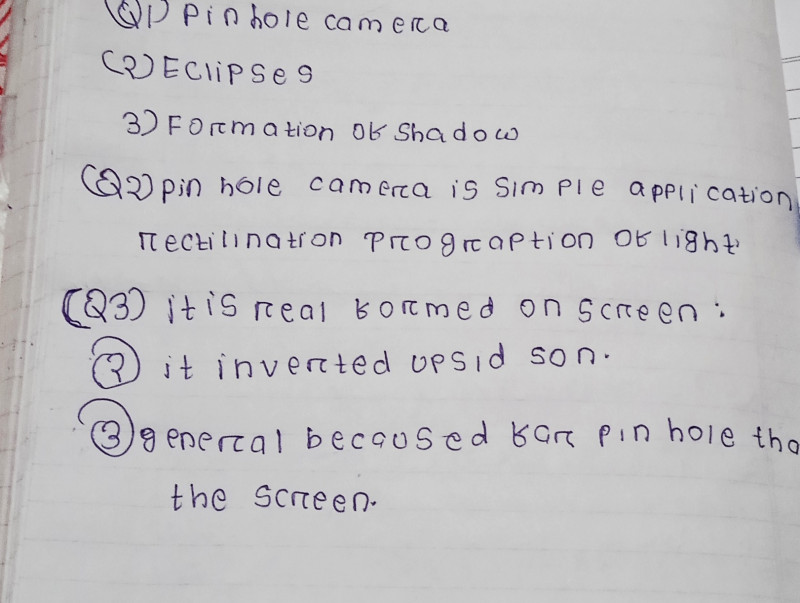 (Q1) Pin hole camera
(2) Eclipses
3) Formation of shadow
(Q2) pin hole camera is simple application
rectilination prograption of light
(Q3) it is real formed on screen:
(2) it inverted upsid son.
(3) general becaused far pin hole tha
the screen.